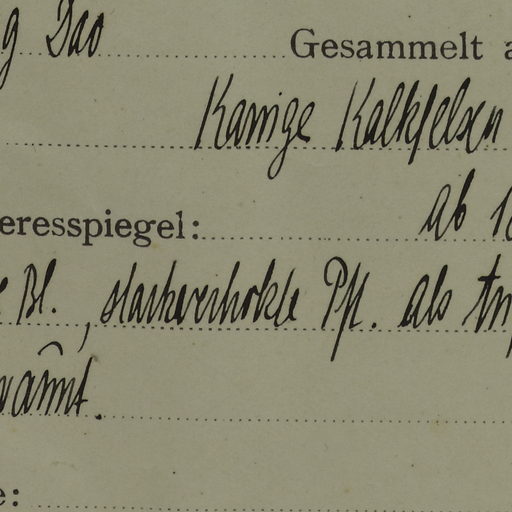 g Dao Gesammelt a
Kantige Kalkfelsen
eresspiegel: ab 1
Bl., starkverholzte Pfl. als